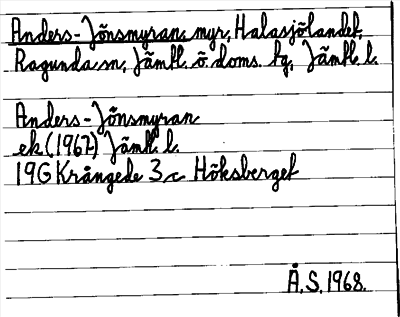 Anders-Jönsmyran, myr, Halasjölandet,
Ragunda sn, Jämtl. ö. doms. tg, Jämtl. l.
Anders-Jönsmyran
ek (1967) Jämtl. l.
19G Krångede 3 c Höksberget
Å. S. 1968.